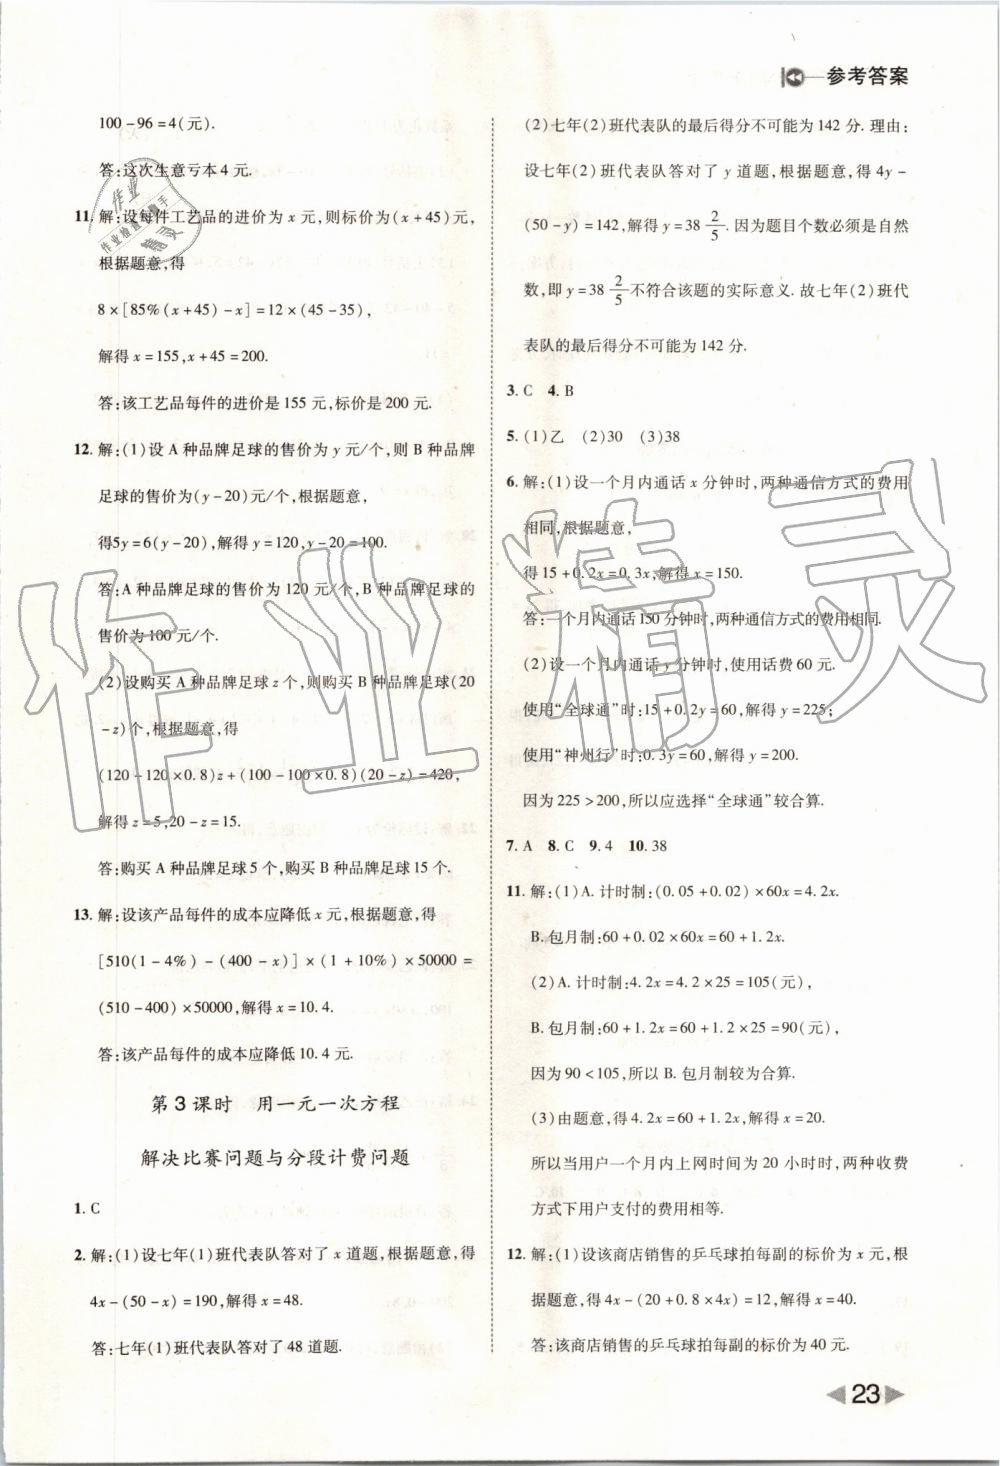 参考答案
100-96=4(元).
答:这次生意亏本4元.
11. 解:设每件工艺品的进价为x元,则标价为(x+45)元,
根据题意,得
8×[85%(x+45)-x]=12×(45-35),
解得x=155,x+45=200.
答:该工艺品每件的进价是155元,标价是200元.
12. 解:(1)设A种品牌足球的售价为y元/个,则B种品牌
足球的售价为(y-20)元/个,根据题意,
得5y=6(y-20),解得y=120,y-20=100.
答:A种品牌足球的售价为120元/个,B种品牌足球的
售价为100元/个.
(2)设购买A种品牌足球z个,则购买B种品牌足球(20
-z)个,根据题意,得
(120-120×0.8)z+(100-100×0.8)(20-z)=420,
解得z=5,20-z=15.
答:购买A种品牌足球5个,购买B种品牌足球15个.
13. 解:设该产品每件的成本应降低x元,根据题意,得
[510(1-4%)-(400-x)]×(1+10%)×50000=
(510-400)×50000,解得x=10.4.
答:该产品每件的成本应降低10.4元.
第3课时 用一元一次方程
解决比赛问题与分段计费问题
1. C
2. 解:(1)设七年(1)班代表队答对了x道题,根据题意,得
4x-(50-x)=190,解得x=48.
答:七年(1)班代表队答对了48道题.
(2)七年(2)班代表队的最后得分不可能为142分.理由:
设七年(2)班代表队答对了y道题,根据题意,得4y-
(50-y)=142,解得y=38 2/5.因为题目个数必须是自然
数,即y=38 2/5不符合该题的实际意义.故七年(2)班代
表队的最后得分不可能为142分.
3. C 4. B
5. (1)乙 (2)30 (3)38
6. 解:(1)设一个月内通话x分钟时,两种通信方式的费用
相同,根据题意,
得15+0.2x=0.3x,解得x=150.
答:一个月内通话150分钟时,两种通信方式的费用相同.
(2)设一个月内通话y分钟时,使用话费60元.
使用“全球通”时:15+0.2y=60,解得y=225;
使用“神州行”时:0.3y=60,解得y=200.
因为225>200,所以应选择“全球通”较合算.
7. A 8. C 9. 4 10. 38
11. 解:(1)A.计时制:(0.05+0.02)×60x=4.2x.
B.包月制:60+0.02×60x=60+1.2x.
(2)A.计时制:4.2x=4.2×25=105(元),
B.包月制:60+1.2x=60+1.2×25=90(元),
因为90<105,所以B.包月制较为合算.
(3)由题意,得4.2x=60+1.2x,解得x=20.
所以当用户一个月内上网时间为20小时时,两种收费
方式下用户支付的费用相等.
12. 解:(1)设该商店销售的乒乓球拍每副的标价为x元,根
据题意,得4x-(20+0.8×4x)=12,解得x=40.
答:该商店销售的乒乓球拍每副的标价为40元.
23
作业精灵